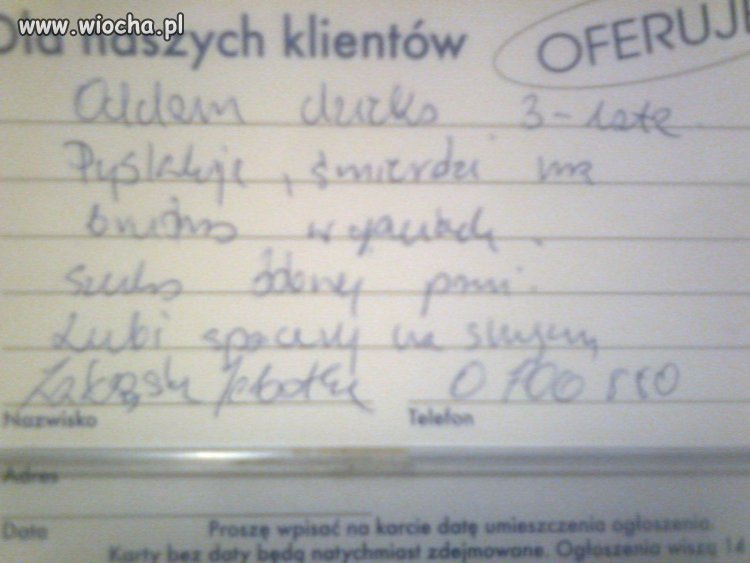 www.wiocha.pl
Dla naszych klientów
OFERUJE
Oddam 3-latę
Pyskluje, śmierdzi ma
brudno w
szuka pani.
Lubi spacery na smyczy
0 700 880
Nazwisko Telefon
Adres
Data Proszę wpisać na karcie datę umieszczenia ogłoszenia.
Karty bez daty będą natychmiast zdejmowane. Ogłoszenia wiszą 14